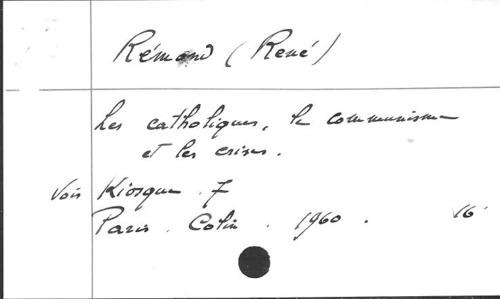 Rémond (René)
Les catholiques, le communisme
et les crises.
Voir Kiosque . 7
Paris . Colin . 1960 . 16